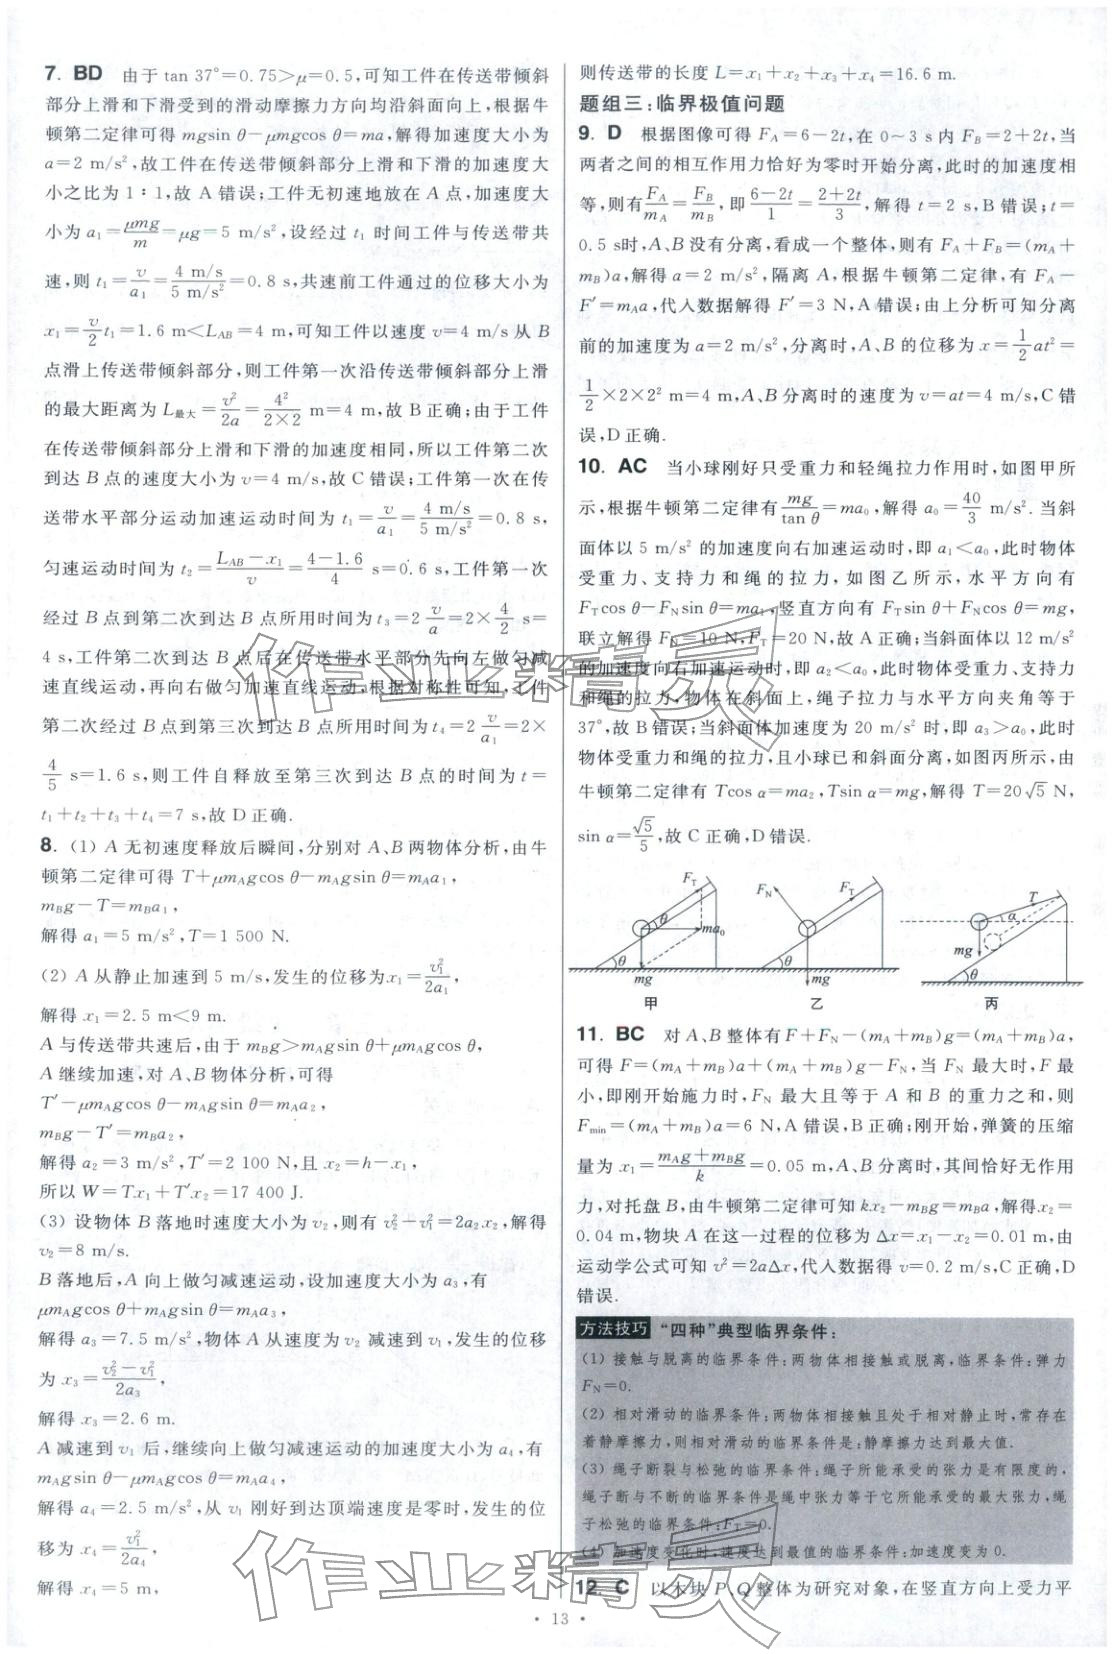 7. BD　由于 tan 37°=0.75>μ=0.5,可知工件在传送带倾斜
部分上滑和下滑受到的滑动摩擦力方向均沿斜面向上,根据牛
顿第二定律可得 mgsin θ-μmgcos θ=ma,解得加速度大小为
a=2 m/s²,故工件在传送带倾斜部分上滑和下滑的加速度大
小之比为 1∶1,故 A 错误;工件无初速地放在 A 点,加速度大
小为 a₁=μmg/m=μg=5 m/s²,设经过 t₁ 时间工件与传送带共
速,则 t₁=v/a₁=(4 m/s)/(5 m/s²)=0.8 s,共速前工件通过的位移大小为
x₁=v/2 t₁=1.6 m<L_AB=4 m,可知工件以速度 v=4 m/s 从 B
点滑上传送带倾斜部分,则工件第一次沿传送带倾斜部分上滑
的最大距离为 L最大=v²/2a=4²/(2×2) m=4 m,故 B 正确;由于工件
在传送带倾斜部分上滑和下滑的加速度相同,所以工件第二次
到达 B 点的速度大小为 v=4 m/s,故 C 错误;工件第一次在传
送带水平部分运动加速运动时间为 t₁=v/a₁=(4 m/s)/(5 m/s²)=0.8 s,
匀速运动时间为 t₂=(L_AB-x₁)/v=(4-1.6)/4 s=0.6 s,工件第一次
经过 B 点到第二次到达 B 点所用时间为 t₃=2 v/a=2×4/2 s=
4 s,工件第二次到达 B 点后在传送带水平部分先向左做匀减
速直线运动,再向右做匀加速直线运动,根据对称性可知,工件
第二次经过 B 点到第三次到达 B 点所用时间为 t₄=2 v/a₁=2×
4/5 s=1.6 s,则工件自释放至第三次到达 B 点的时间为 t=
t₁+t₂+t₃+t₄=7 s,故 D 正确.
8. (1) A 无初速度释放后瞬间,分别对 A、B 两物体分析,由牛
顿第二定律可得 T+μm_A gcos θ-m_A gsin θ=m_A a₁,
m_B g-T=m_B a₁,
解得 a₁=5 m/s²,T=1 500 N.
(2) A 从静止加速到 5 m/s,发生的位移为x₁=v₁²/2a₁,
解得 x₁=2.5 m<9 m.
A 与传送带共速后,由于 m_B g>m_A gsin θ+μm_A gcos θ,
A 继续加速,对 A、B 物体分析,可得
T′-μm_A gcos θ-m_A gsin θ=m_A a₂,
m_B g-T′=m_B a₂,
解得 a₂=3 m/s²,T′=2 100 N,且 x₂=h-x₁,
所以 W=Tx₁+T′x₂=17 400 J.
(3) 设物体 B 落地时速度大小为 v₂,则有 v₂²-v₁²=2a₂x₂,解得
v₂=8 m/s.
B 落地后,A 向上做匀减速运动,设加速度大小为 a₃,有
μm_A gcos θ+m_A gsin θ=m_A a₃,
解得 a₃=7.5 m/s²,物体 A 从速度为 v₂ 减速到 v₁,发生的位移
为 x₃=(v₂²-v₁²)/2a₃,
解得 x₃=2.6 m.
A 减速到 v₁ 后,继续向上做匀减速运动的加速度大小为 a₄,有
m_A gsin θ-μm_A gcos θ=m_A a₄,
解得 a₄=2.5 m/s²,从 v₁ 刚好到达顶端速度是零时,发生的位
移为 x₄=v₁²/2a₄,
解得 x₄=5 m,
则传送带的长度 L=x₁+x₂+x₃+x₄=16.6 m.
题组三:临界极值问题
9. D　根据图像可得 F_A=6-2t,在 0~3 s 内 F_B=2+2t,当
两者之间的相互作用力恰好为零时开始分离,此时的加速度相
等,则有F_A/m_A=F_B/m_B,即(6-2t)/1=(2+2t)/3,解得 t=2 s,B 错误;t=
0.5 s时,A、B 没有分离,看成一个整体,则有 F_A+F_B=(m_A+
m_B)a,解得 a=2 m/s²,隔离 A,根据牛顿第二定律,有 F_A-
F′=m_A a,代入数据解得 F′=3 N,A 错误;由上分析可知分离
前的加速度为 a=2 m/s²,分离时,A、B 的位移为 x=1/2 at²=
1/2×2×2² m=4 m,A、B 分离时的速度为 v=at=4 m/s,C 错
误,D 正确.
10. AC　当小球刚好只受重力和轻绳拉力作用时,如图甲所
示,根据牛顿第二定律有 mg/tan θ=ma₀,解得 a₀=40/3 m/s².当斜
面体以 5 m/s² 的加速度向右加速运动时,即 a₁<a₀,此时物体
受重力、支持力和绳的拉力,如图乙所示,水平方向有
F_T cos θ-F_N sin θ=ma₁,竖直方向有 F_T sin θ+F_N cos θ=mg,
联立解得 F_N=10 N,F_T=20 N,故 A 正确;当斜面体以 12 m/s²
的加速度向右加速运动时,即 a₂<a₀,此时物体受重力、支持力
和绳的拉力,物体在斜面上,绳子拉力与水平方向夹角等于
37°,故 B 错误;当斜面体加速度为 20 m/s² 时,即 a₃>a₀,此时
物体受重力和绳的拉力,且小球已和斜面分离,如图丙所示,由
牛顿第二定律有 Tcos α=ma₂,Tsin α=mg,解得 T=20√5 N,
sin α=√5/5,故 C 正确,D 错误.
F_T θ ma₀ θ mg 甲
F_N F_T θ mg 乙
T α mg θ 丙
11. BC　对 A、B 整体有 F+F_N-(m_A+m_B)g=(m_A+m_B)a,
可得 F=(m_A+m_B)a+(m_A+m_B)g-F_N,当 F_N 最大时,F 最
小,即刚开始施力时,F_N 最大且等于 A 和 B 的重力之和,则
F_min=(m_A+m_B)a=6 N,A 错误,B 正确;刚开始,弹簧的压缩
量为 x₁=(m_A g+m_B g)/k=0.05 m,A、B 分离时,其间恰好无作用
力,对托盘 B,由牛顿第二定律可知 kx₂-m_B g=m_B a,解得x₂=
0.04 m,物块 A 在这一过程的位移为 Δx=x₁-x₂=0.01 m,由
运动学公式可知 v²=2aΔx,代入数据得 v=0.2 m/s,C 正确,D
错误.
方法技巧 “四种”典型临界条件:
(1) 接触与脱离的临界条件:两物体相接触或脱离,临界条件:弹力
F_N=0.
(2) 相对滑动的临界条件:两物体相接触且处于相对静止时,常存在
着静摩擦力,则相对滑动的临界条件是:静摩擦力达到最大值.
(3) 绳子断裂与松弛的临界条件:绳子所能承受的张力是有限度的,
绳子断与不断的临界条件是绳中张力等于它所能承受的最大张力,绳
子松弛的临界条件:F_T=0.
(4) 加速度变化时,速度达到最值的临界条件:加速度变为 0.
12. C　以木块 P、Q 整体为研究对象,在竖直方向上受力平
• 13 •
作业精灵
作业精灵